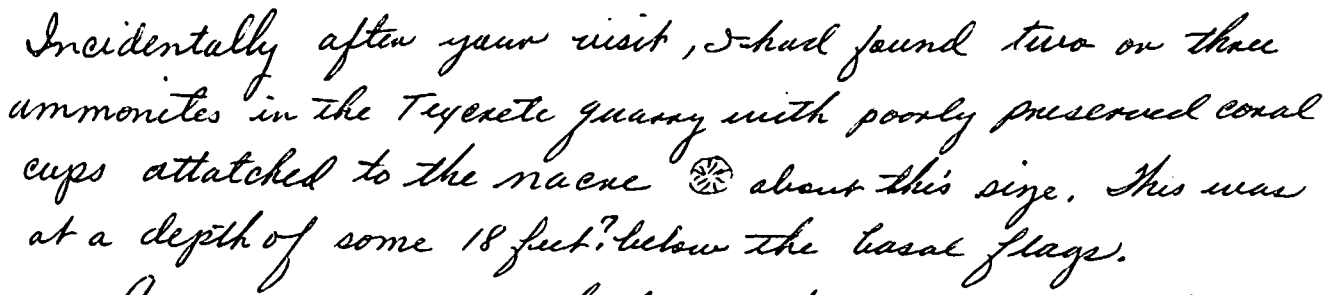 Incidentally after your visit, I had found two or three
ammonites in the Texcrete quarry with poorly preserved coral
cups attatched to the nacre about this size. This was
at a depth of some 18 feet? below the basal flags.